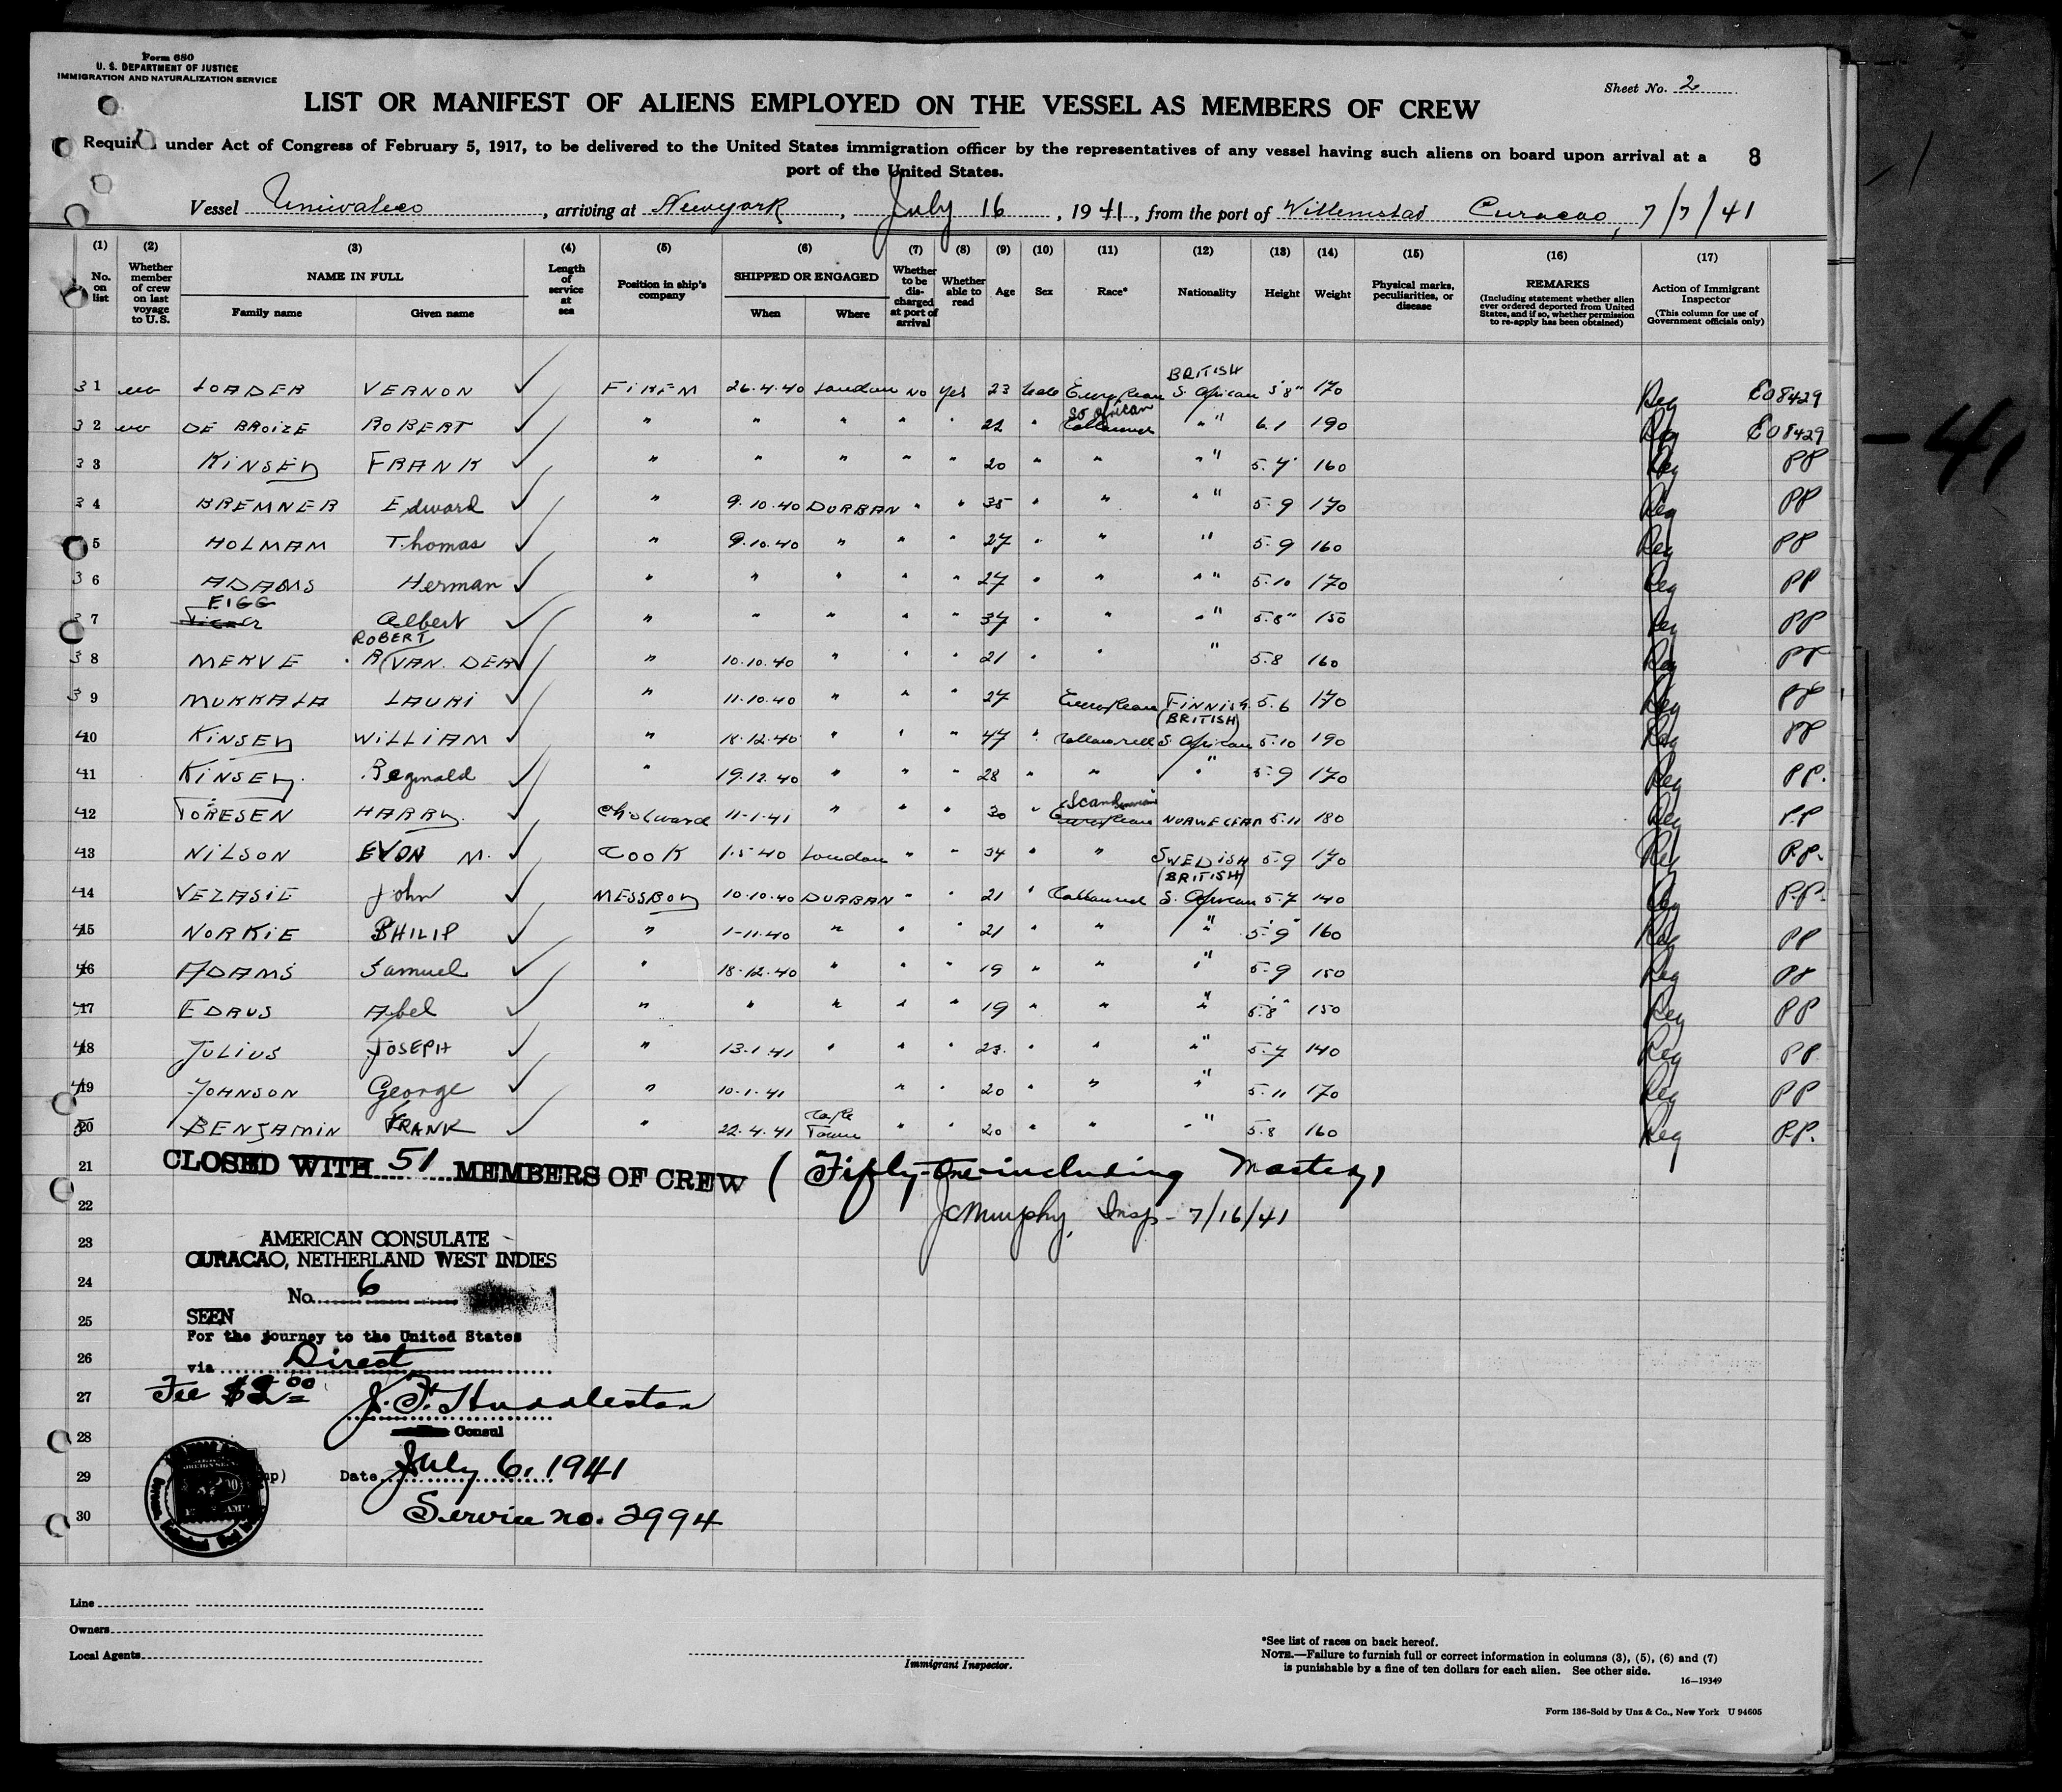 Form 680
U. S. DEPARTMENT OF JUSTICE
IMMIGRATION AND NATURALIZATION SERVICE
Sheet No. 2
LIST OR MANIFEST OF ALIENS EMPLOYED ON THE VESSEL AS MEMBERS OF CREW
under Act of Congress of February 5, 1917, to be delivered to the United States immigration officer by the representatives of any vessel having such aliens on board upon arrival at a
port of the United States.
8
Vessel Uniwaleco, arriving at Newyork, July 16, 1941, from the port of Willemstad Curacao, 7/7/41
(1) (2) (3) (4) (5) (6) (7) (8) (9) (10) (11) (12) (13) (14) (15) (16) (17)
No. on list
Whether member of crew on last voyage to U.S.
NAME IN FULL
Family name Given name
Length of service at sea
Position in ship's company
SHIPPED OR ENGAGED
When Where
Whether to be discharged at port of arrival
Whether able to read
Age
Sex
Race*
Nationality
Height
Weight
Physical marks, peculiarities, or disease
REMARKS
(Including statement whether alien ever ordered deported from United States, and if so, whether permission to re-apply has been obtained)
Action of Immigrant Inspector
(This column for use of Government officials only)
31 LOADER VERNON ✓ FIREM 26.4.40 London No Yes 23 Male European BRITISH S. African 5'8" 170 Reg E08429
32 DE BROIZE ROBERT ✓ " " " " " 22 " So African " " 6.1 190 Reg E08429
33 KINSEY FRANK ✓ " " " " " 20 " " " " 5.7 160 Reg PP
34 BREMNER Edward ✓ " 9.10.40 DURBAN " " 35 " " " " 5.9 170 Reg PP
5 HOLMAM Thomas ✓ " 9.10.40 " " " 27 " " " 5.9 160 Reg PP
36 ADAMS Herman ✓ " " " " " 27 " " " " 5.10 170 Reg PP
37 FIGG Albert ✓ " " " " " 37 " " " " 5.8" 150 Reg PP
38 MERVE ROBERT R (VAN. DER ✓ " 10.10.40 " " " 21 " " " 5.8 160 Reg PP
39 MUKKALA LAURI ✓ " 11.10.40 " " " 27 European FINNISH 5.6 170 Reg PP
40 KINSEY WILLIAM ✓ " 18.12.40 " " " 47 " (BRITISH) S. African 5.10 190 Reg PP
41 KINSEY. Reginald ✓ " 19.12.40 " " " 28 " " " 5.9 170 Reg PP.
42 TORESEN HARRY. ✓ 11-1-41 " " " 30 " Scandinavian European NORWEGIAN 5.11 180 Reg P.P
43 NILSON EVON M. ✓ COOK 1.5.40 London " " 34 " " SWEDISH 5.9 170 Reg P.P.
44 VEZASIE John ✓ MESSBOY 10.10.40 DURBAN " " 21 " Coloured (BRITISH) S. African 5.7 140 Reg P.P.
45 NORKIE PHILIP ✓ " 1-11.40 " " " 21 " " " 5'9" 160 Reg PP
46 ADAMS Samuel ✓ " 18.12.40 " " " 19 " " " 5.9 150 Reg PP
47 EDRUS Abel ✓ " " " " " 19 " " " 5'8" 150 Reg PP
48 JULIUS JOSEPH ✓ " 13.1.41 " " " 23. " " " 5.7 140 Reg PP
49 JOHNSON George ✓ " 10.1.41 " " 20 " " " 5.11 170 Reg PP
50 BENJAMIN FRANK ✓ " 22.4.41 Cape Town " " 20 " " " 5.8 160 Reg P.P.
21 CLOSED WITH 51 MEMBERS OF CREW (Fifty-One-including Master)
22 JCMurphy, Insp- 7/16/41
23 AMERICAN CONSULATE
CURACAO, NETHERLAND WEST INDIES
24 No. 6
25 SEEN
For the journey to the United States
26 via Direct
27 Fee $2.00 J. F. Huddleston
28 Consul
29 Date July 6, 1941
30 Service no. 2994
Line
Owners
Local Agents
Immigrant Inspector.
*See list of races on back hereof.
NOTE.—Failure to furnish full or correct information in columns (3), (5), (6) and (7)
is punishable by a fine of ten dollars for each alien. See other side.
16—19349
Form 136-Sold by Unz & Co., New York U 94605
-41